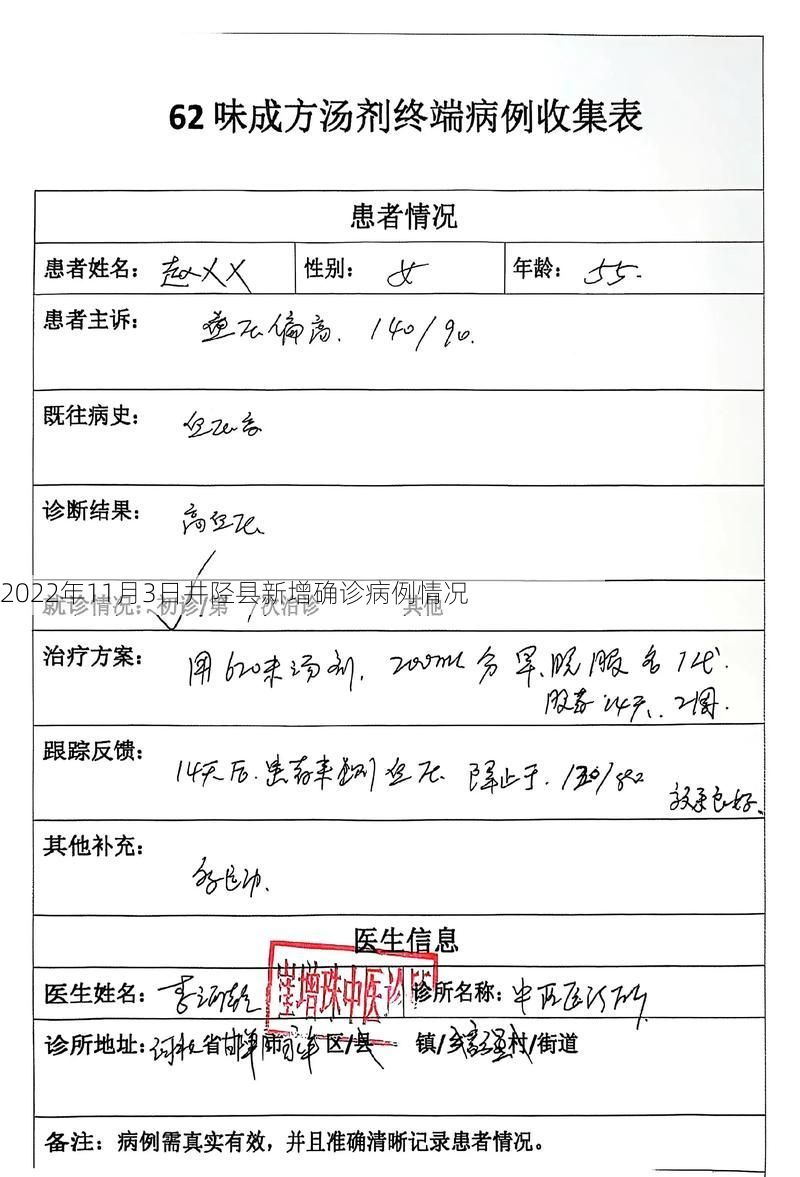 62味成方汤剂终端病例收集表
患者情况
患者姓名：赵XX 性别：女 年龄：55.
患者主诉：血压偏高. 140/90.
既往病史：血压高
诊断结果：高血压
2022年11月3日井陉县新增确诊病例情况
就诊情况：初诊/第 /次治诊 其他
治疗方案：用620味汤剂, 200ml分早、晚服各1代.
服药14天、2周.
跟踪反馈：14天后.患者来测血压 降止于. 130/82
效果良好、
其他补充：多运动.
医生信息
医生姓名：李 崔增珠中医诊所 诊所名称：中医医诊所
诊所地址：河北省邯郸市 区/县 镇/乡 村/街道
备注：病例需真实有效，并且准确清晰记录患者情况。